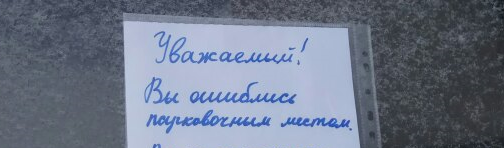 Уважаемый!
Вы ошиблись
парковочным местом.